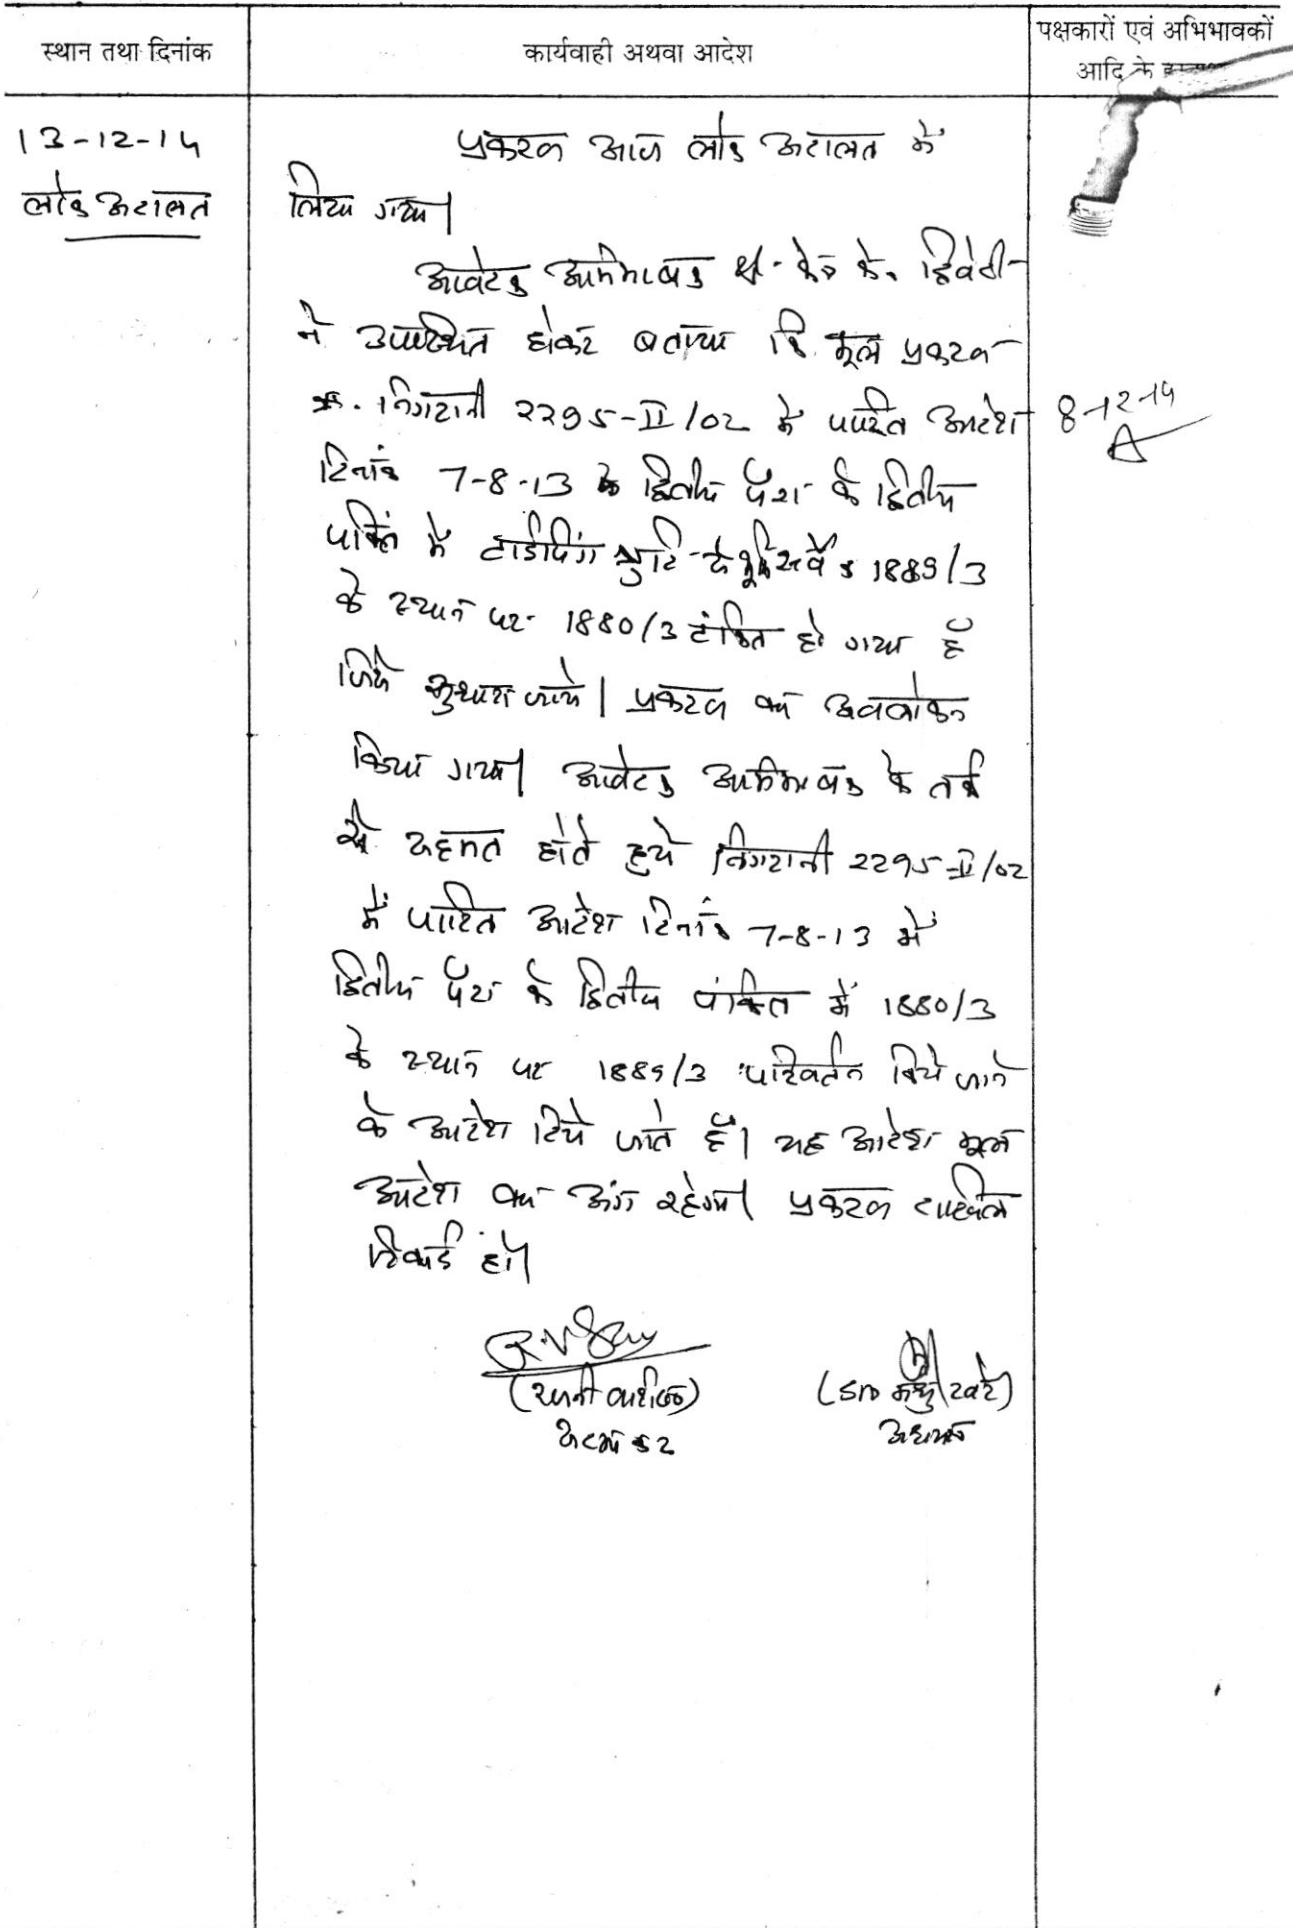 स्थान तथा दिनांक
कार्यवाही अथवा आदेश
पक्षकारों एवं अभिभावकों
आदि के
13-12-14
लोक अदालत
प्रकरण आज लोक अदालत में
लिया गया।
आवेदक अभिभाषक श्री के. द्विवेदी
ने उपस्थित होकर बताया कि मूल प्रकरण
क्र. निगरानी 2295-II/02 में पारित आदेश
8-12-14
दिनांक 7-8-13 के द्वितीय पैरा के द्वितीय
पंक्ति में टाईपिंग त्रुटि से भूमि सर्वे क्र 1889/3
के स्थान पर 1880/3 टंकित हो गया है
जिसे सुधारा जाये। प्रकरण का अवलोकन
किया गया। आवेदक अभिभाषक के तर्क
से सहमत होते हुये निगरानी 2295-II/02
में पारित आदेश दिनांक 7-8-13 में
द्वितीय पैरा के द्वितीय पंक्ति में 1880/3
के स्थान पर 1889/3 परिवर्तन किये जाने
के आदेश दिये जाते हैं। यह आदेश मूल
आदेश का अंग रहेगा। प्रकरण दाखिल
रिकार्ड हो।